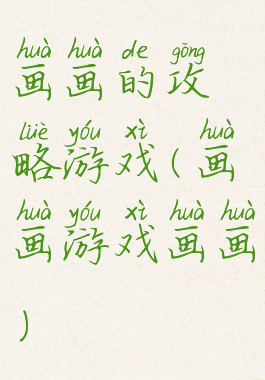 huà huà de gōng
画画的攻
lüè yóu xì huà
略游戏(画
huà yóu xì huà huà
画游戏画画
)